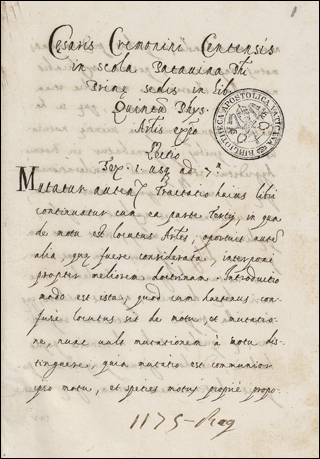 1
Cesaris Cremonini Centensis
in scola Patavina Phi
Primę sedis in lib
Quintum Phys.
Artis expo
Lectio
Tex. 1. usq ad 7.m
Mutatur autem Tractatio huius libri
continuatur cum ea parte Tertij, in qua
de motu est locutus Artes, oportuit autem
alia, quę fuere considerata, interponi
propter meliorem doctrinam. Introductio
modo est ista, quod cum hactenus con-
fuse locutus sit de motu, et mutatio-
ne, nunc uult mutationem à motu dis-
tinguere, quia mutatio est communior
ipso motu, et species motus propriè propo-
1175-Reg
BIBLIOTECA APOSTOLICA VATICANA